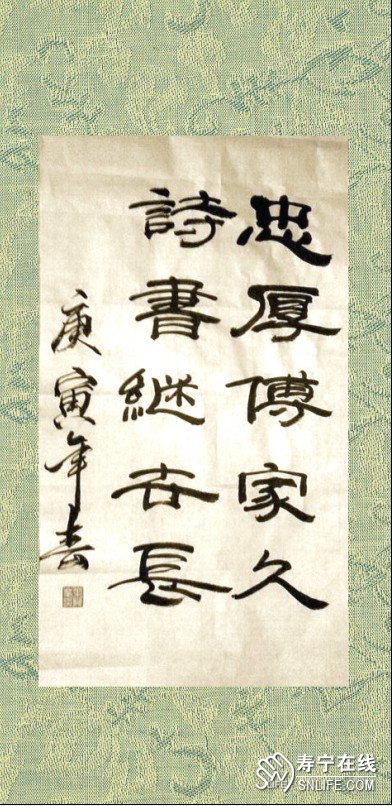 忠厚傅家久
詩書継世長
庚寅年春
寿宁在线
SNLIFE.COM